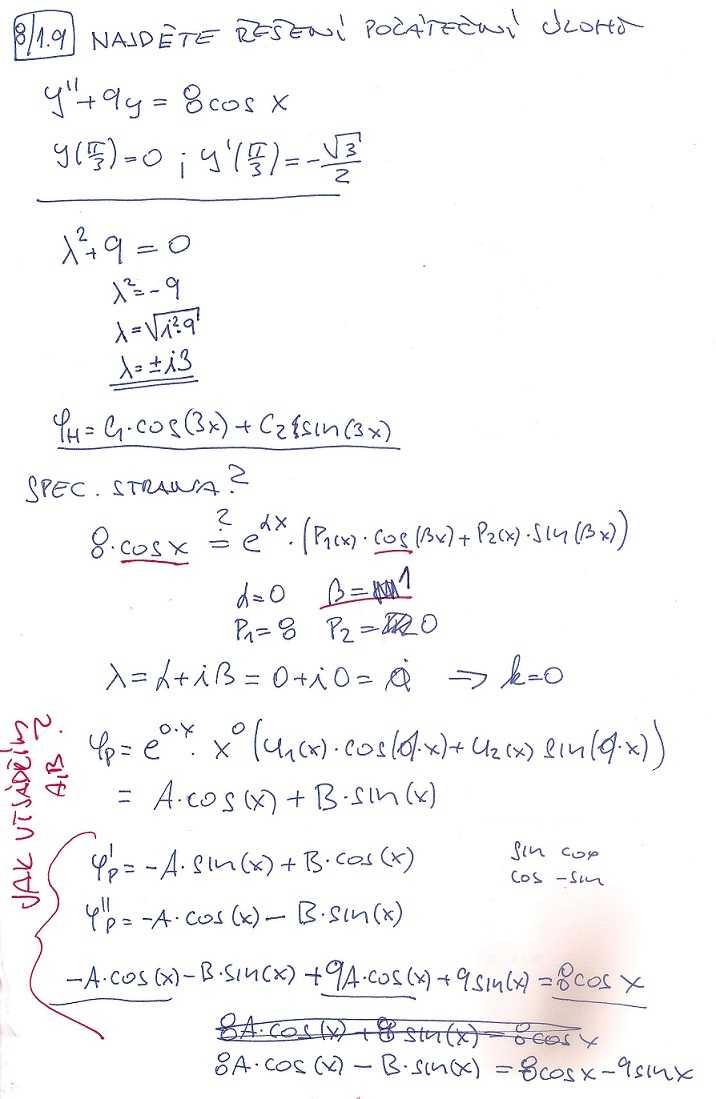 8/1.9 NAJDĚTE ŘEŠENÍ POČÁTEČNÍ ÚLOHY
y''+9y = 8cos x
y(π/3)=0 ; y'(π/3)=-√3/2
λ²+9=0
λ²=-9
λ=√i²·9
λ=±i3
φH=C1·cos(3x)+C2·sin(3x)
SPEC. STRANA?
8·cos x ?= e^αx·(P1(x)·cos(βx)+P2(x)·sin(βx))
α=0 β=1
P1=8 P2=0
λ=α+iβ=0+i0= => k=0
φP=e^0·x·x^0(u1(x)·cos(·x)+u2(x) sin(·x))
= A·cos(x)+B·sin(x)
JAK VYJÁDŘÍM A,B?
φ'P=-A·sin(x)+B·cos(x)
sin cos
cos -sin
φ''P=-A·cos(x)-B·sin(x)
-A·cos(x)-B·sin(x)+9A·cos(x)+9sin(x)=8cos x
8A·cos(x)+8 sin(x)=8cos x
8A·cos(x)-B·sin(x)=8cosx-9sinx